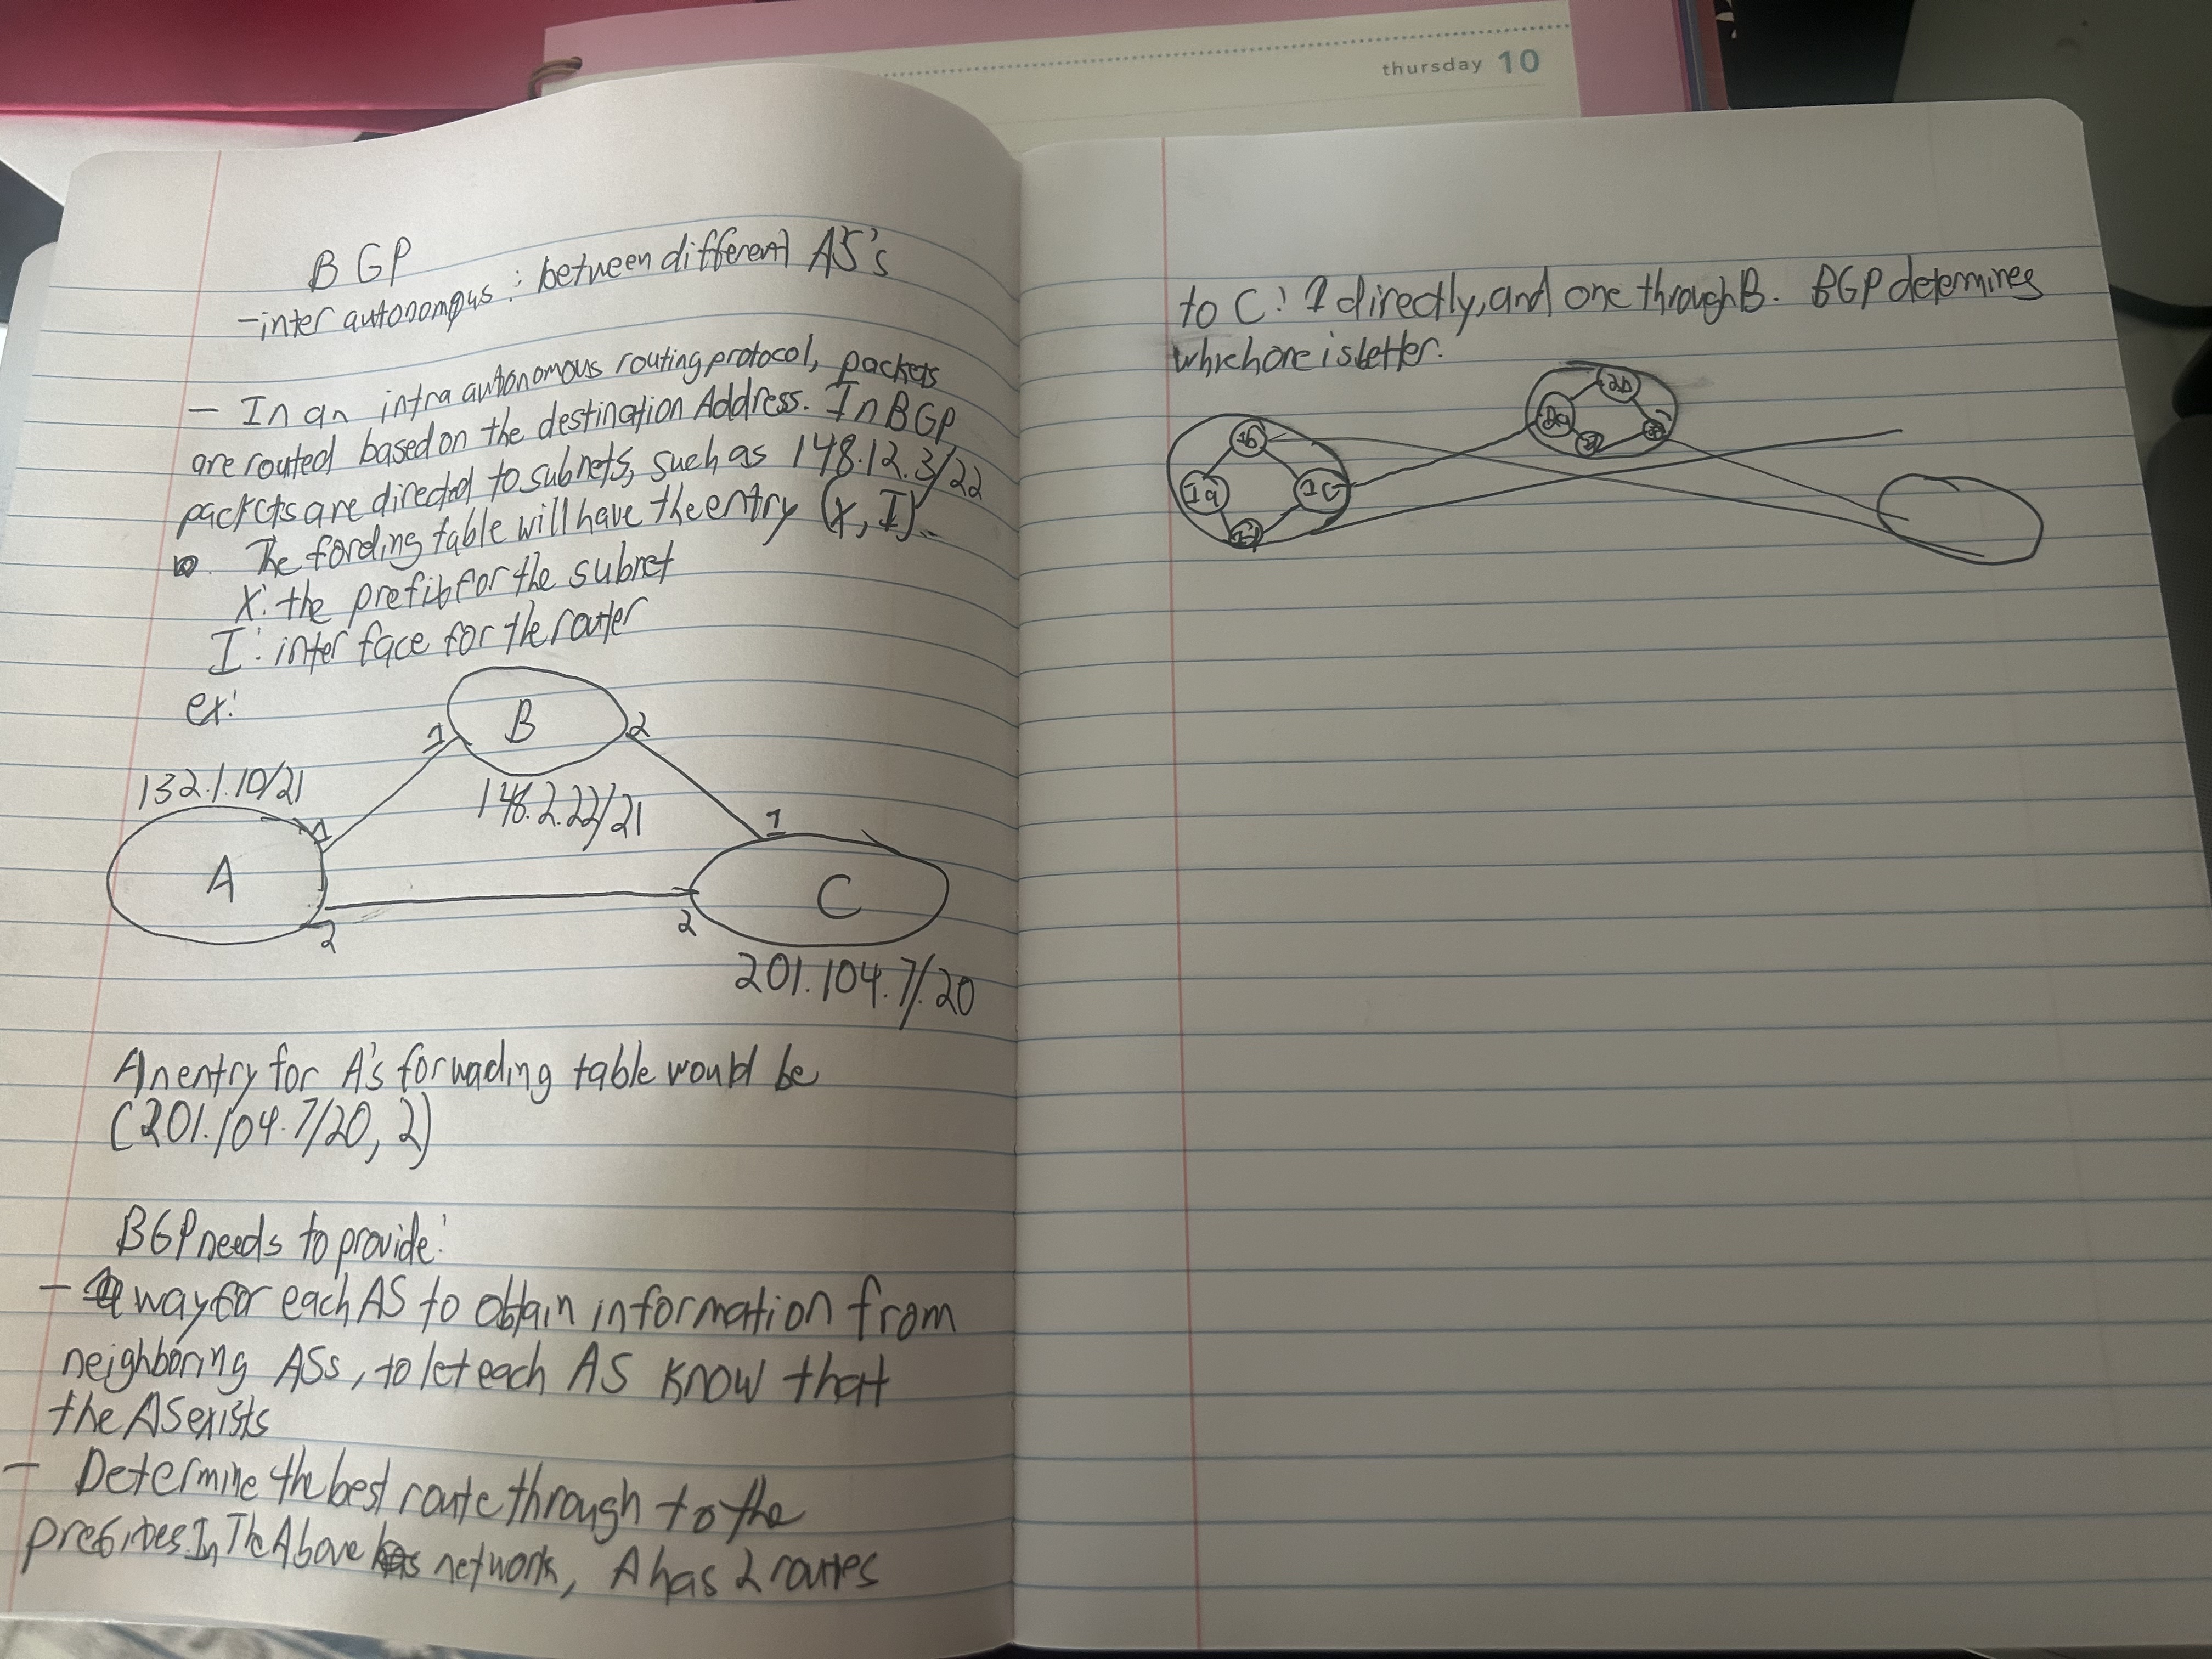 thursday 10
BGP
- inter autonomous : between different AS's
- In an intra autonomous routing protocol, packets
are routed based on the destination Address. In BGP
packets are directed to subnets, such as 148.12.3/22
The fording table will have the entry (X, I).
X: the prefix for the subnet
I: inter face for the router
ex:
B
1
2
132.1.10/21
148.2.22/21
1
1
A
C
2
2
201.104.7/.20
An entry for A's forwading table would be
(201.104.7/20, 2)
BGP needs to provide:
- a way for each AS to obtain information from
neighboring ASs, to let each AS know that
the AS exists
- Determine the best route through to the
prefixes. In The Above network, A has 2 routes
to C: 1 directly, and one through B. BGP determines
which one is better.
2b
2a
1b
1a
1c